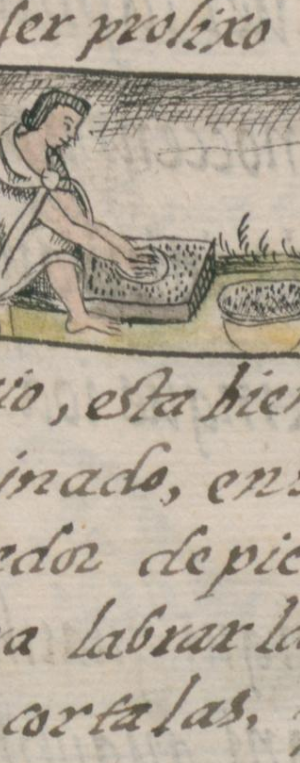 ser prolixo
io, esta bien
inado, en
edor de pie
ra labrar la
cortalas,